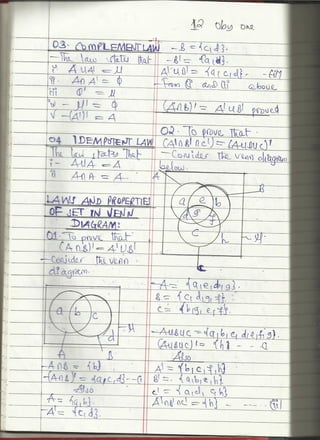 12 Oby one
03. COMPLEMENT LAW
- The law states that
i. A ∪ A' = μ
ii. A ∩ A' = ϕ
iii ϕ' = μ
iv - μ' = ϕ
v - (A')' = A
04 IDEMPOTENT LAW
The law states that
i- A ∪ A = A
ii A ∩ A = A.
LAWS AND PROPERTIES
OF SET IN VENN
DIAGRAM:
01. To prove that
(A∩B)' = A'∪B'
- Consider the venn
diagram.
a b c
d
μ
A B
- A∩B = {b}
- (A∩B)' = {a,c,d} -- (i)
Also
A = {a,b}.
- A' = {c,d}.
- B = {c,d}.
- B' = {a,d}.
A'∪B' = {a,c,d}. -- (ii)
- From (i) and (ii) above
(A∩B)' = A'∪B' proved
02. To prove that
(A'∩B'∩C') = (A∪B∪C)'
- Consider the venn diagram
below.
A
B
a e b
d g f
c
h
μ
C
- A∪B∪C = {a,b,c,d,e,f,g}.
(A∪B∪C)' = {h} - - (i)
Also
A' = {b,c,f,h}
A'∩B'∩C' = {h} - - - - (ii)